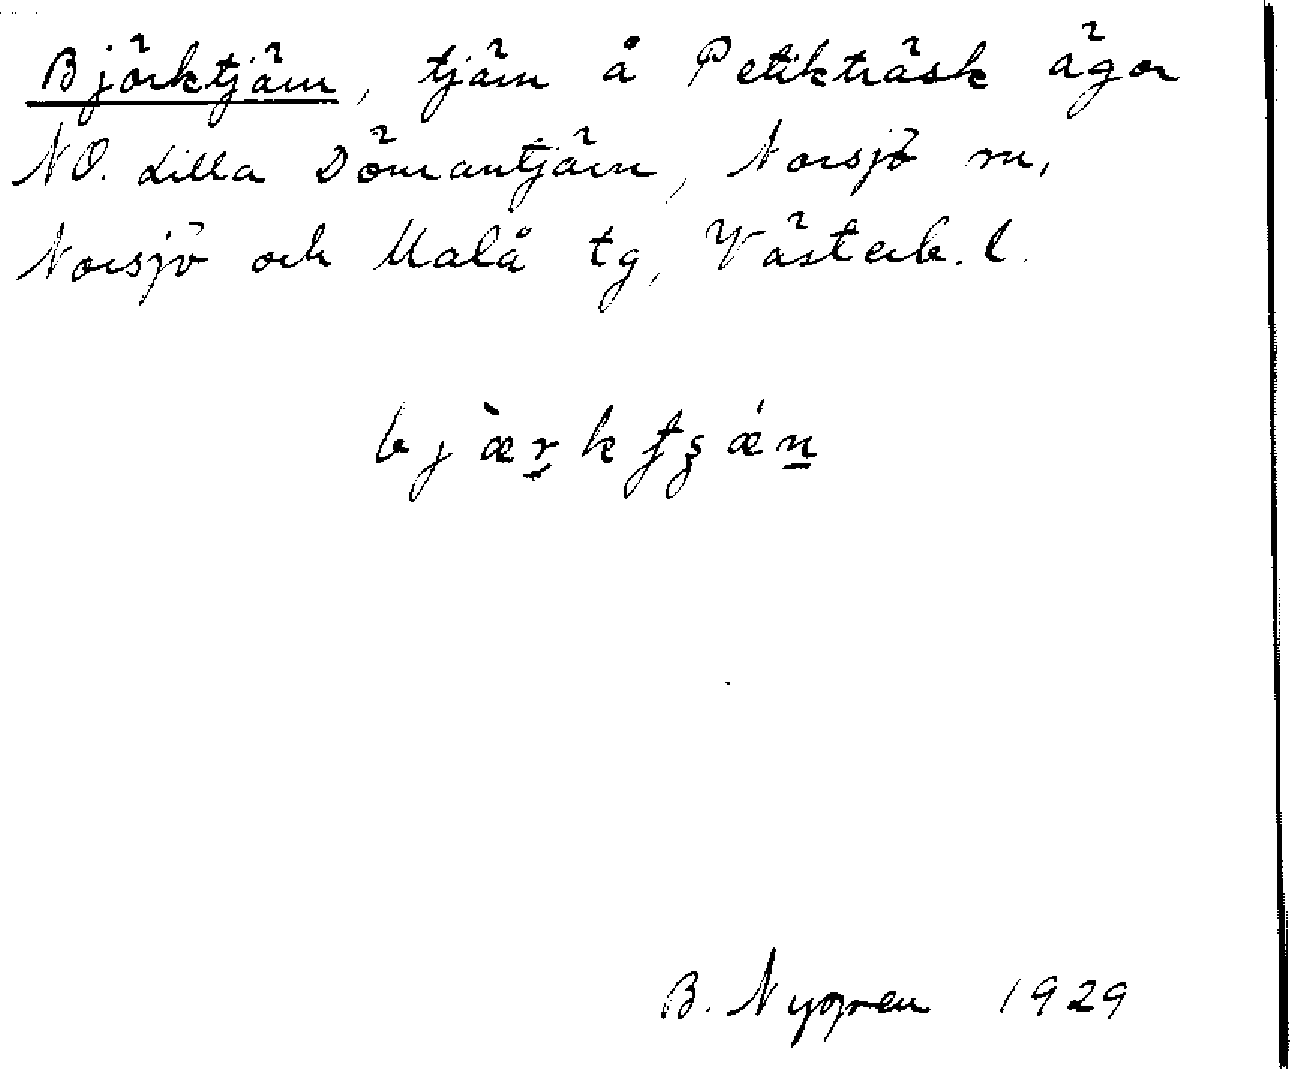 Björktjärn, tjärn å Petikträsk ägor
NO. Lilla Dömantjärn, Norsjö sn,
Norsjö och Malå tg, Västerb. l.
bjæ̀r̠kʈʂǽn̠
B. Nygren 1929